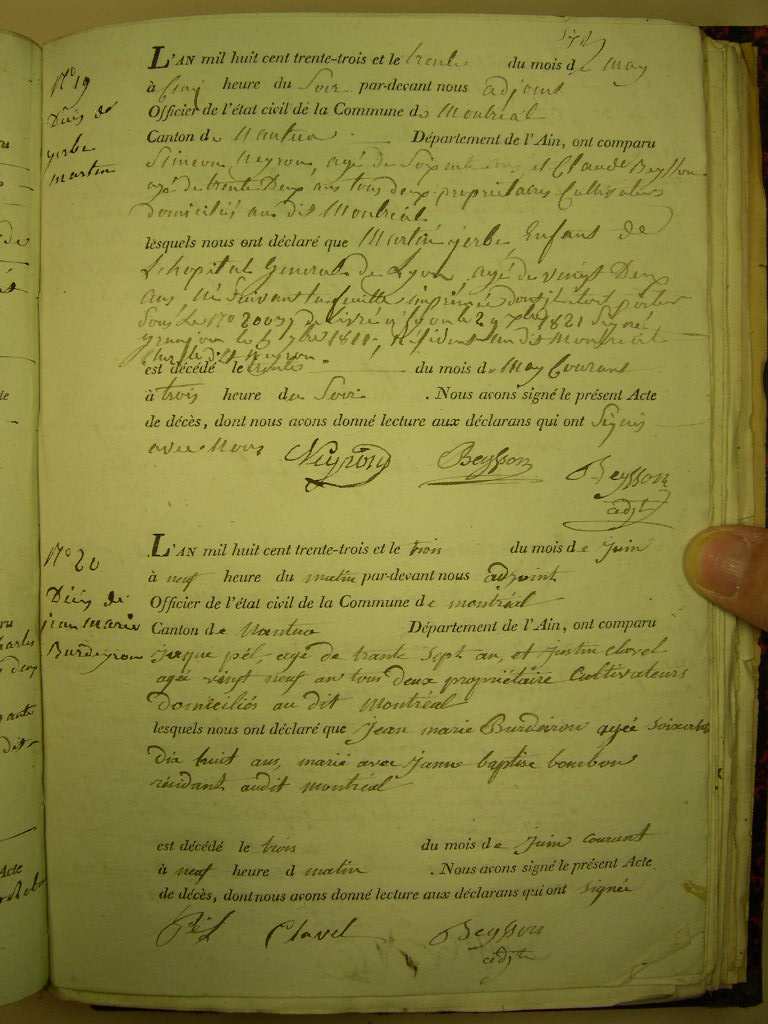 L'AN mil huit cent trente-trois et le trente du mois de May
N° 19
à Cinq heure du Soir par-devant nous adjoint
Décès de
Officier de l'état civil de la Commune de Montréal
yerbe
Canton de Nantua Département de l'Ain, ont comparu
martin
Simeon Neyron, agé de Soixante ans, et Claude Beysson
agé de trente Deux ans tous deux propriétaires Cultivateurs
domiciliés au dit Montréal
lesquels nous ont déclaré que Martin yerbe, Enfant de
L'hopital General de Lyon, agé de vingt Deux
ans, Né Suivant la feuille imprimée dont il etoit porteur
Sous Le N° 1821 Signé
1811, Résident au dit Montréal
Chez le dit Neyron
est décédé le trente du mois de May Courant
à trois heure du Soir . Nous avons signé le présent Acte
de décès, dont nous avons donné lecture aux déclarans qui ont Signés
avec Nous Neyron Beysson Beysson
adjt
L'AN mil huit cent trente-trois et le trois du mois de Juin
N° 20
à neuf heure du matin par-devant nous adjoint
Décès de
Officier de l'état civil de la Commune de montréal
jean Marie
Canton de Nantua Département de l'Ain, ont comparu
Burdeyron
jaque pél, agé de trante Sept an, et justin clavel
agée vingt neuf an tous deux propriétaire Cultivateurs
domiciliés au dit Montréal
lesquels nous ont déclaré que Jean marie Burdeiron agée soixante
dix huit ans, marié avec janne baptise bombon
résidant audit montréal
est décédé le trois du mois de Juin courant
à neuf heure d matin . Nous avons signé le présent Acte
de décès, dont nous avons donné lecture aux déclarans qui ont signée
Pél Clavel Beysson
adjt